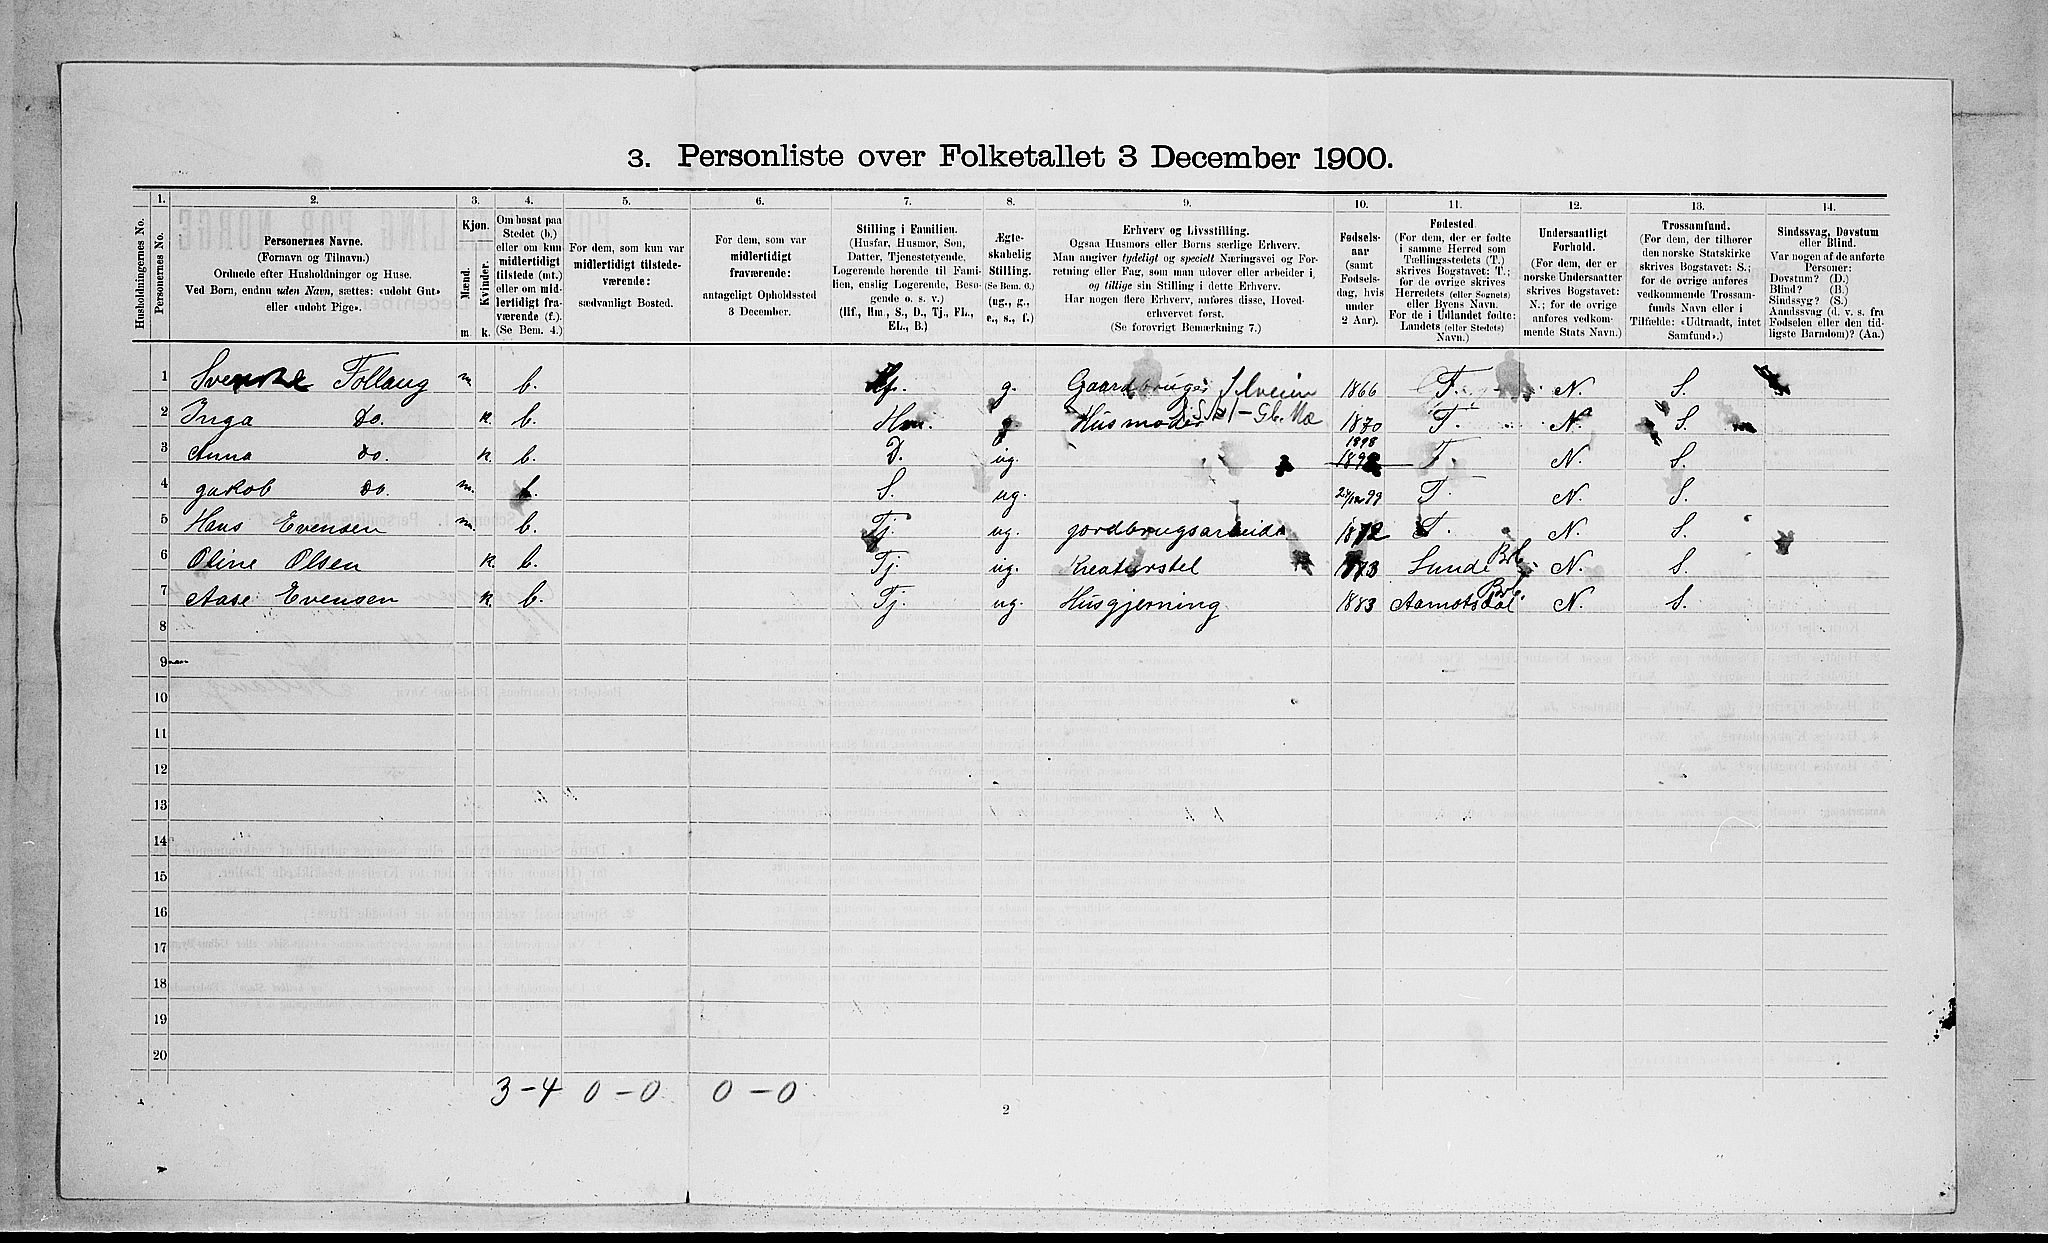 3. Personliste over Folketallet 3 December 1900.
1. 2. 3. 4. 5. 6. 7. 8. 9. 10. 11. 12. 13. 14.
Husholdningernes No.
Personernes No.
Personernes Navne.
(Fornavn og Tilnavn.)
Ordnede efter Husholdninger og Huse.
Ved Børn, endnu uden Navn, sættes: «udøbt Gut»
eller «udøbt Pige».
Kjøn.
Mænd.
Kvinder.
m. k.
Om bosat paa
Stedet (b.)
eller om kun
midlertidigt
tilstede (mt.)
eller om mid-
lertidigt fra-
værende (f.).
(Se Bem. 4.)
For dem, som kun var
midlertidigt tilstede-
værende:
sædvanligt Bosted.
For dem, som var
midlertidigt
fraværende:
antageligt Opholdssted
3 December.
Stilling i Familien.
(Husfar, Husmor, Søn,
Datter, Tjenestetyende,
Logerende hørende til Fami-
lien, enslig Logerende, Besø-
gende o. s. v.)
(Hf., Hm., S., D., Tj., FL.,
EL., B.)
Ægte-
skabelig
Stilling.
(Se Bem. 6.)
(ug., g.,
e., s., f.)
Erhverv og Livsstilling.
Ogsaa Husmors eller Børns særlige Erhverv.
Man angiver tydeligt og specielt Næringsvei og For-
retning eller Fag, som man udøver eller arbeider i,
og tillige sin Stilling i dette Erhverv.
Har nogen flere Erhverv, anføres disse, Hoved-
erhvervet først.
(Se forøvrigt Bemærkning 7.)
Fødsels-
aar
(samt
Fødsels-
dag, hvis
under
2 Aar).
Fødested.
(For dem, der er fødte
i samme Herred som
Tællingsstedets (T.)
skrives Bogstavet: T.;
for de øvrige skrives
Herredets (eller Sognets)
eller Byens Navn.
For de i Udlandet fødte:
Landets (eller Stedets)
Navn.)
Undersaatligt
Forhold.
(For norske Undersaatter
skrives Bogstavet:
N.; for de øvrige
anføres vedkom-
mende Stats Navn.)
Trossamfund.
(For dem, der tilhører
den norske Statskirke
skrives Bogstavet: S.;
for de øvrige anføres
vedkommende Trossam-
funds Navn eller i
Tilfælde: «Udtraadt, intet
Samfund».)
Sindssvag, Døvstum
eller Blind.
Var nogen af de anførte
Personer:
Døvstum? (D.)
Blind? (B.)
Sindssyg? (S.)
Aandssvag (d. v. s. fra
Fødselen eller den tid-
ligste Barndom)? (Aa.)
1 Follaug m. b. Hf. g. Gaardbruger Selveier 1866 T. N. S.
2 Inga Do. k. b. Hm. g. Husmoder 1870 T. N. S.
3 Anna Do. k. b. D. ug. 1898 T. N. S.
4 Jakob Do. m. b. S. ug. 99 T. N. S.
5 Hans Evensen m. b. Tj. ug. jordbrugsarbeide 1872 T. N. S.
6 Oline Olsen k. b. Tj. ug. Kreaturstel 1873 Lunde Brb. N. S.
7 Aase Evensen k. b. Tj. ug. Husgjerning 1883 Aamotsdal Brb. N. S.
8
9
10
11
12
13
14
15
16
17
18
19
20
3-4 0-0 0-0
2